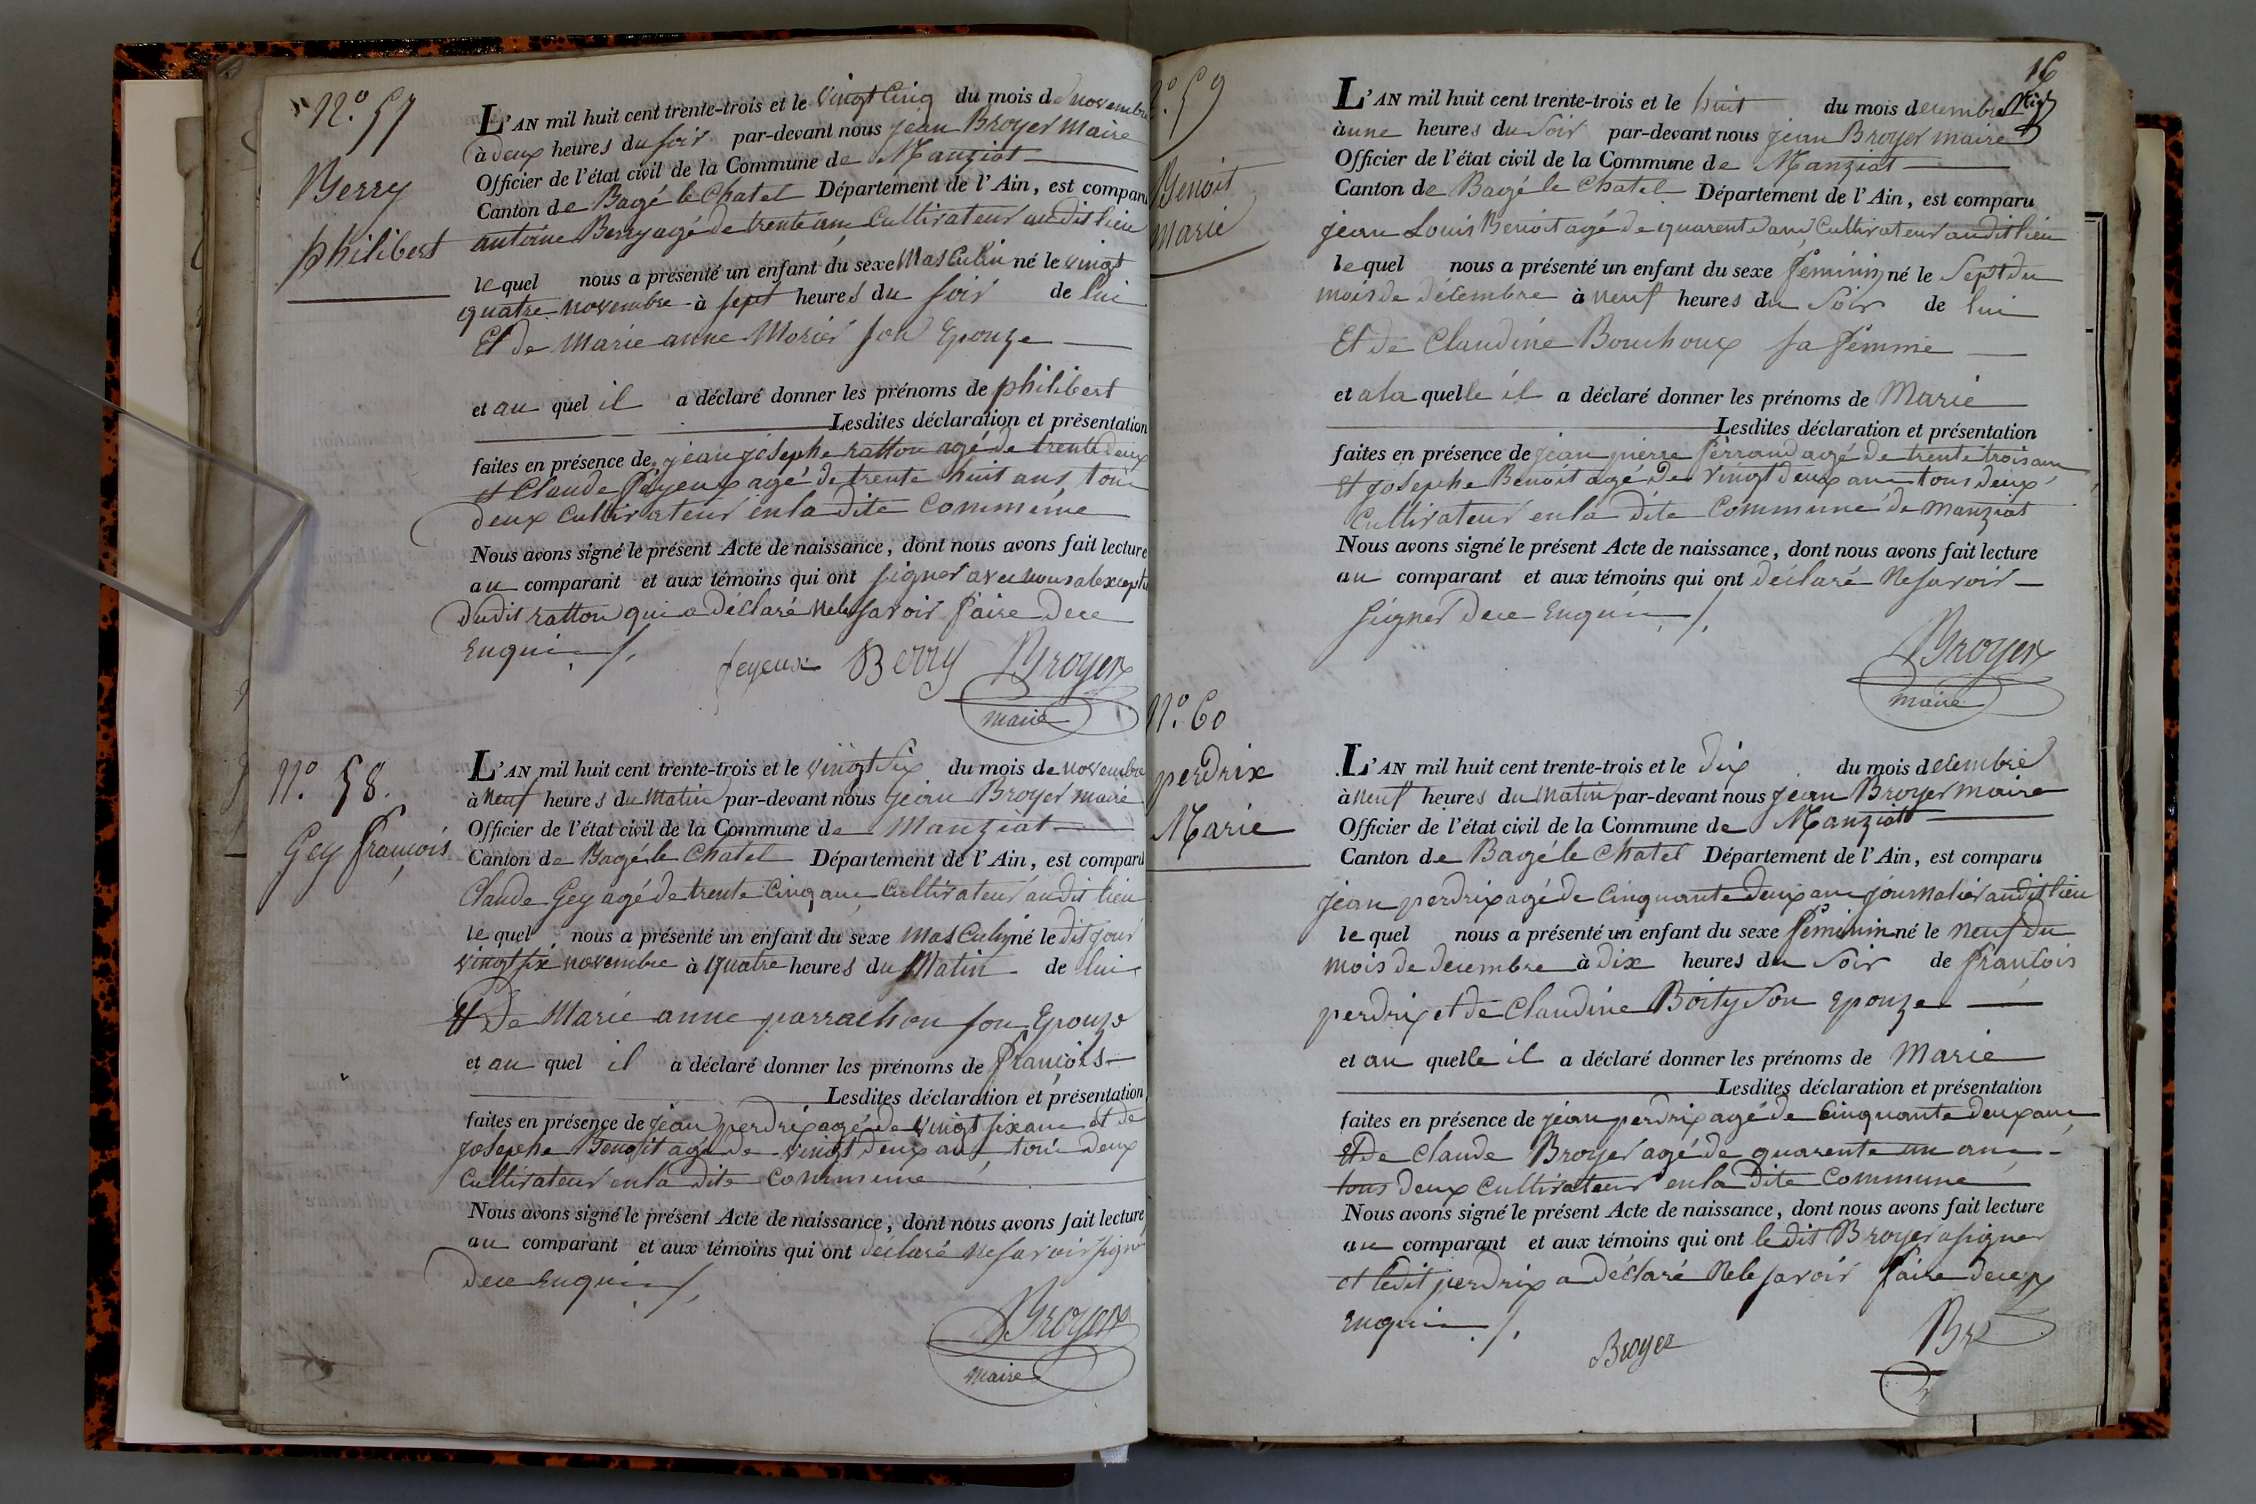 N.º 57
Berry
philibert
L'AN mil huit cent trente-trois et le vingt Cinq du mois de novembre
à deux heures du soir par-devant nous jean Broyer Maire
Officier de l'état civil de la Commune de Manziat
Canton de Bagé le Chatel Département de l'Ain, est comparu
antoine Berry agé de trente ans Cultivateur audit lieu
le quel nous a présenté un enfant du sexe Masculin né le vingt
quatre novembre à sept heures du soir de lui
Et de Marie anne Morier son Epouze
et au quel il a déclaré donner les prénoms de philibert
Lesdites déclaration et présentation
faites en présence de jean josephe ratton agé de trente deux
et Claude feyeux agé de trente huit ans, tous
deux Cultivateur en la dite Commune
Nous avons signé le présent Acte de naissance, dont nous avons fait lecture
au comparant et aux témoins qui ont signer avec nous a lexcepté
dudit ratton qui a déclaré nele savoir faire de ce
Enquis ./.
feyeux Berry Broyer
maire
N.º 58.
Gey françois
L'AN mil huit cent trente-trois et le vingt six du mois de novembre
à neuf heures du Matin par-devant nous jean Broyer maire
Officier de l'état civil de la Commune de Manziat
Canton de Bagé le Chatel Département de l'Ain, est comparu
Claude Gey agé de trente Cinq ans, Cultivateur audit lieu
le quel nous a présenté un enfant du sexe masculin né le dit jour
vingt six novembre à quatre heures du Matin de lui
Et De Marie anne parrachon son Epouze
et au quel il a déclaré donner les prénoms de françois
Lesdites déclaration et présentation
faites en présence de jean perdrix agé de vingt six ans et de
josephe Benoit agé de vingt deux ans, tous deux
Cultivateur en la dite Commune
Nous avons signé le présent Acte de naissance, dont nous avons fait lecture
au comparant et aux témoins qui ont déclaré ne savoir signer
de ce Enquis ./.
Broyer
maire
16
N.º 59
Benoit
marie
L'AN mil huit cent trente-trois et le huit du mois decembre
à une heures du Soir par-devant nous jean Broyer maire
Officier de l'état civil de la Commune de Manziat
Canton de Bagé le Chatel Département de l'Ain, est comparu
jean Louis Benoit agé de quarente ans, Cultivateur audit lieu
le quel nous a présenté un enfant du sexe feminin né le Sept du
mois de décembre à neuf heures du Soir de lui
Et de Claudine Bouchoux sa femme
et a la quelle il a déclaré donner les prénoms de Marie
Lesdites déclaration et présentation
faites en présence de jean pierre ferrand agé de trente trois ans
Et josephe Benoit agé De vingt deux ans tous deux
Cultivateur en la dite Commune de Manziat
Nous avons signé le présent Acte de naissance, dont nous avons fait lecture
au comparant et aux témoins qui ont déclaré Ne savoir
signer de ce Enquis ./.
Broyer
maire
N.º 60
perdrix
Marie
L'AN mil huit cent trente-trois et le dix du mois decembre
à neuf heures du Matin par-devant nous jean Broyer maire
Officier de l'état civil de la Commune de Manziat
Canton de Bagé le Chatel Département de l'Ain, est comparu
jean perdrix agé de Cinquante deux ans journalier audit lieu
le quel nous a présenté un enfant du sexe feminin né le neuf du
mois de decembre à dix heures du Soir de françois
perdrix et de Claudine Boity Son Epouze
et au quelle il a déclaré donner les prénoms de Marie
Lesdites déclaration et présentation
faites en présence de jean perdrix agé de Cinquante deux ans
Et De Claude Broyer agé de quarente un ans
tous deux Cultivateur en la dite Commune
Nous avons signé le présent Acte de naissance, dont nous avons fait lecture
au comparant et aux témoins qui ont le dit Broyer a signer
et ledit perdrix a déclaré Ne le savoir faire de ce
Enquis ./.
Broyer